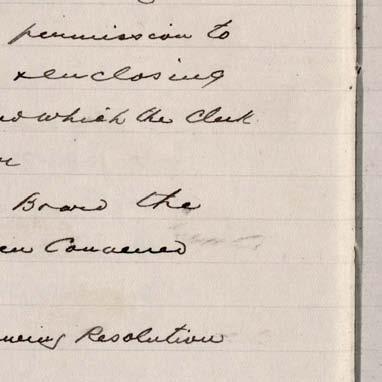 permission to
& enclosing
which the Clerk
Board the
Convened
Resolution